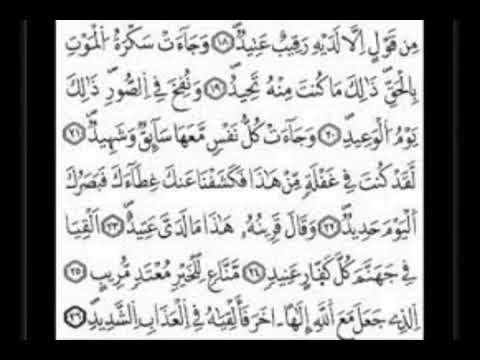 مِن قَوْلٍ اِلَّا لَدَيْهِ رَقِيبٌ عَتِيدٌ ۝١٨ وَجَآءَتْ سَكْرَةُ اُلْمَوْتِ
بِالْحَقِّ ذَٰلِكَ مَا كُنتَ مِنْهُ تَحِيدُ ۝١٩ وَنُفِخَ فِي اِلصُّورِ ذَٰلِكَ
يَوْمُ اُلْوَعِيدِ ۝٢٠ وَجَآءَتْ كُلُّ نَفْسٍ مَّعَهَا سَآئِقٌ وَشَهِيدٌ ۝٢١
لَّقَدْ كُنتَ فِي غَفْلَةٍ مِّنْ هَٰذَا فَكَشَفْنَا عَنكَ غِطَآءَكَ فَبَصَرُكَ
اَلْيَوْمَ حَدِيدٌ ۝٢٢ وَقَالَ قَرِينُهُۥ هَٰذَا مَا لَدَيَّ عَتِيدٌ ۝٢٣ اَلْقِيَا
فِي جَهَنَّمَ كُلَّ كَفَّارٍ عَنِيدٍ ۝٢٤ مَّنَّاعٍ لِّلْخَيْرِ مُعْتَدٍ مُّرِيبٍ ۝٢٥
اِلذِي جَعَلَ مَعَ اَللَّهِ إِلَٰهاً ـ اخَرَ فَأَلْقِيَٰهُ فِي اِلْعَذَابِ اِلشَّدِيدِ ۝٢٦